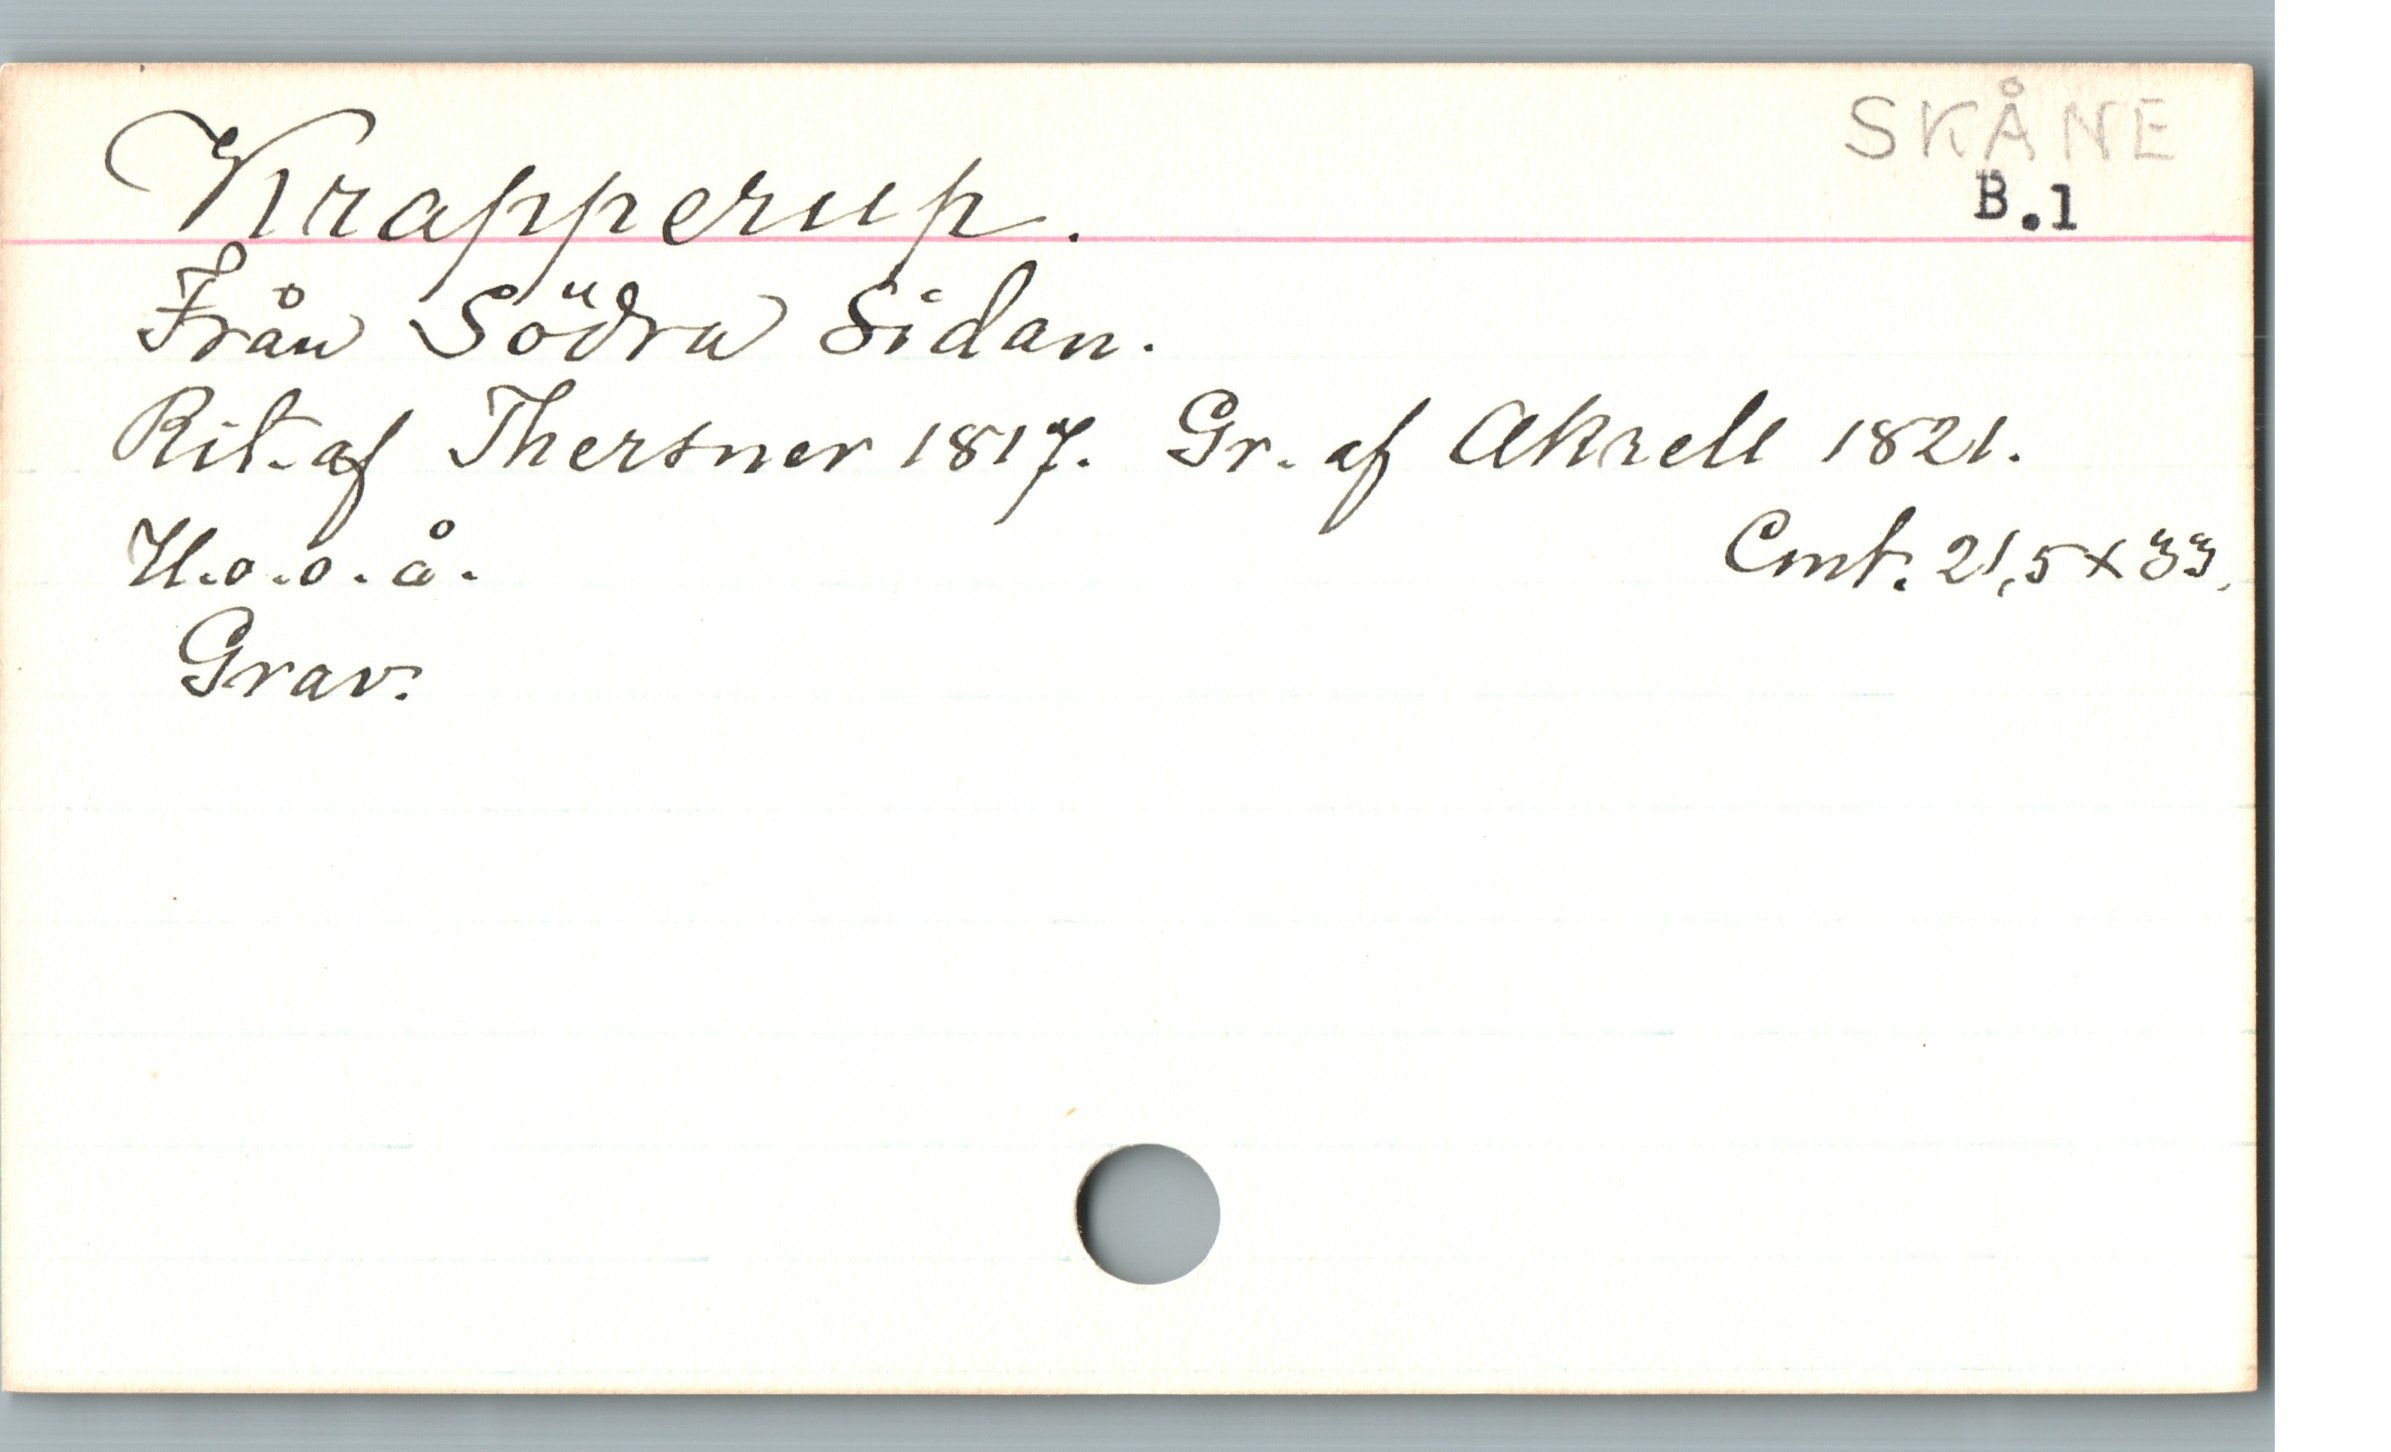 SKÅNE
B.1
Krapperup.
Från Södra Sidan.
Rit. af Thersner 1817. Gr. af Akrell 1821.
U.o.o.å. Cmt. 21,5 x 33.
Grav.